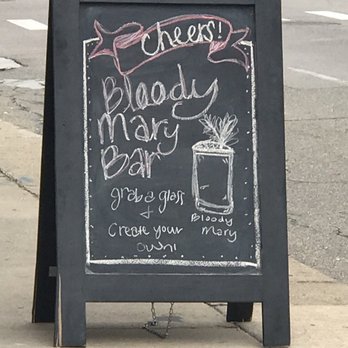 Cheers!
Bloody
Mary
Bar
grab a glass
+
Create your
own!
Bloody
Mary